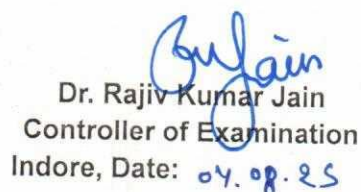 Dr. Rajiv Kumar Jain
Controller of Examination
Indore, Date: 04.08.25